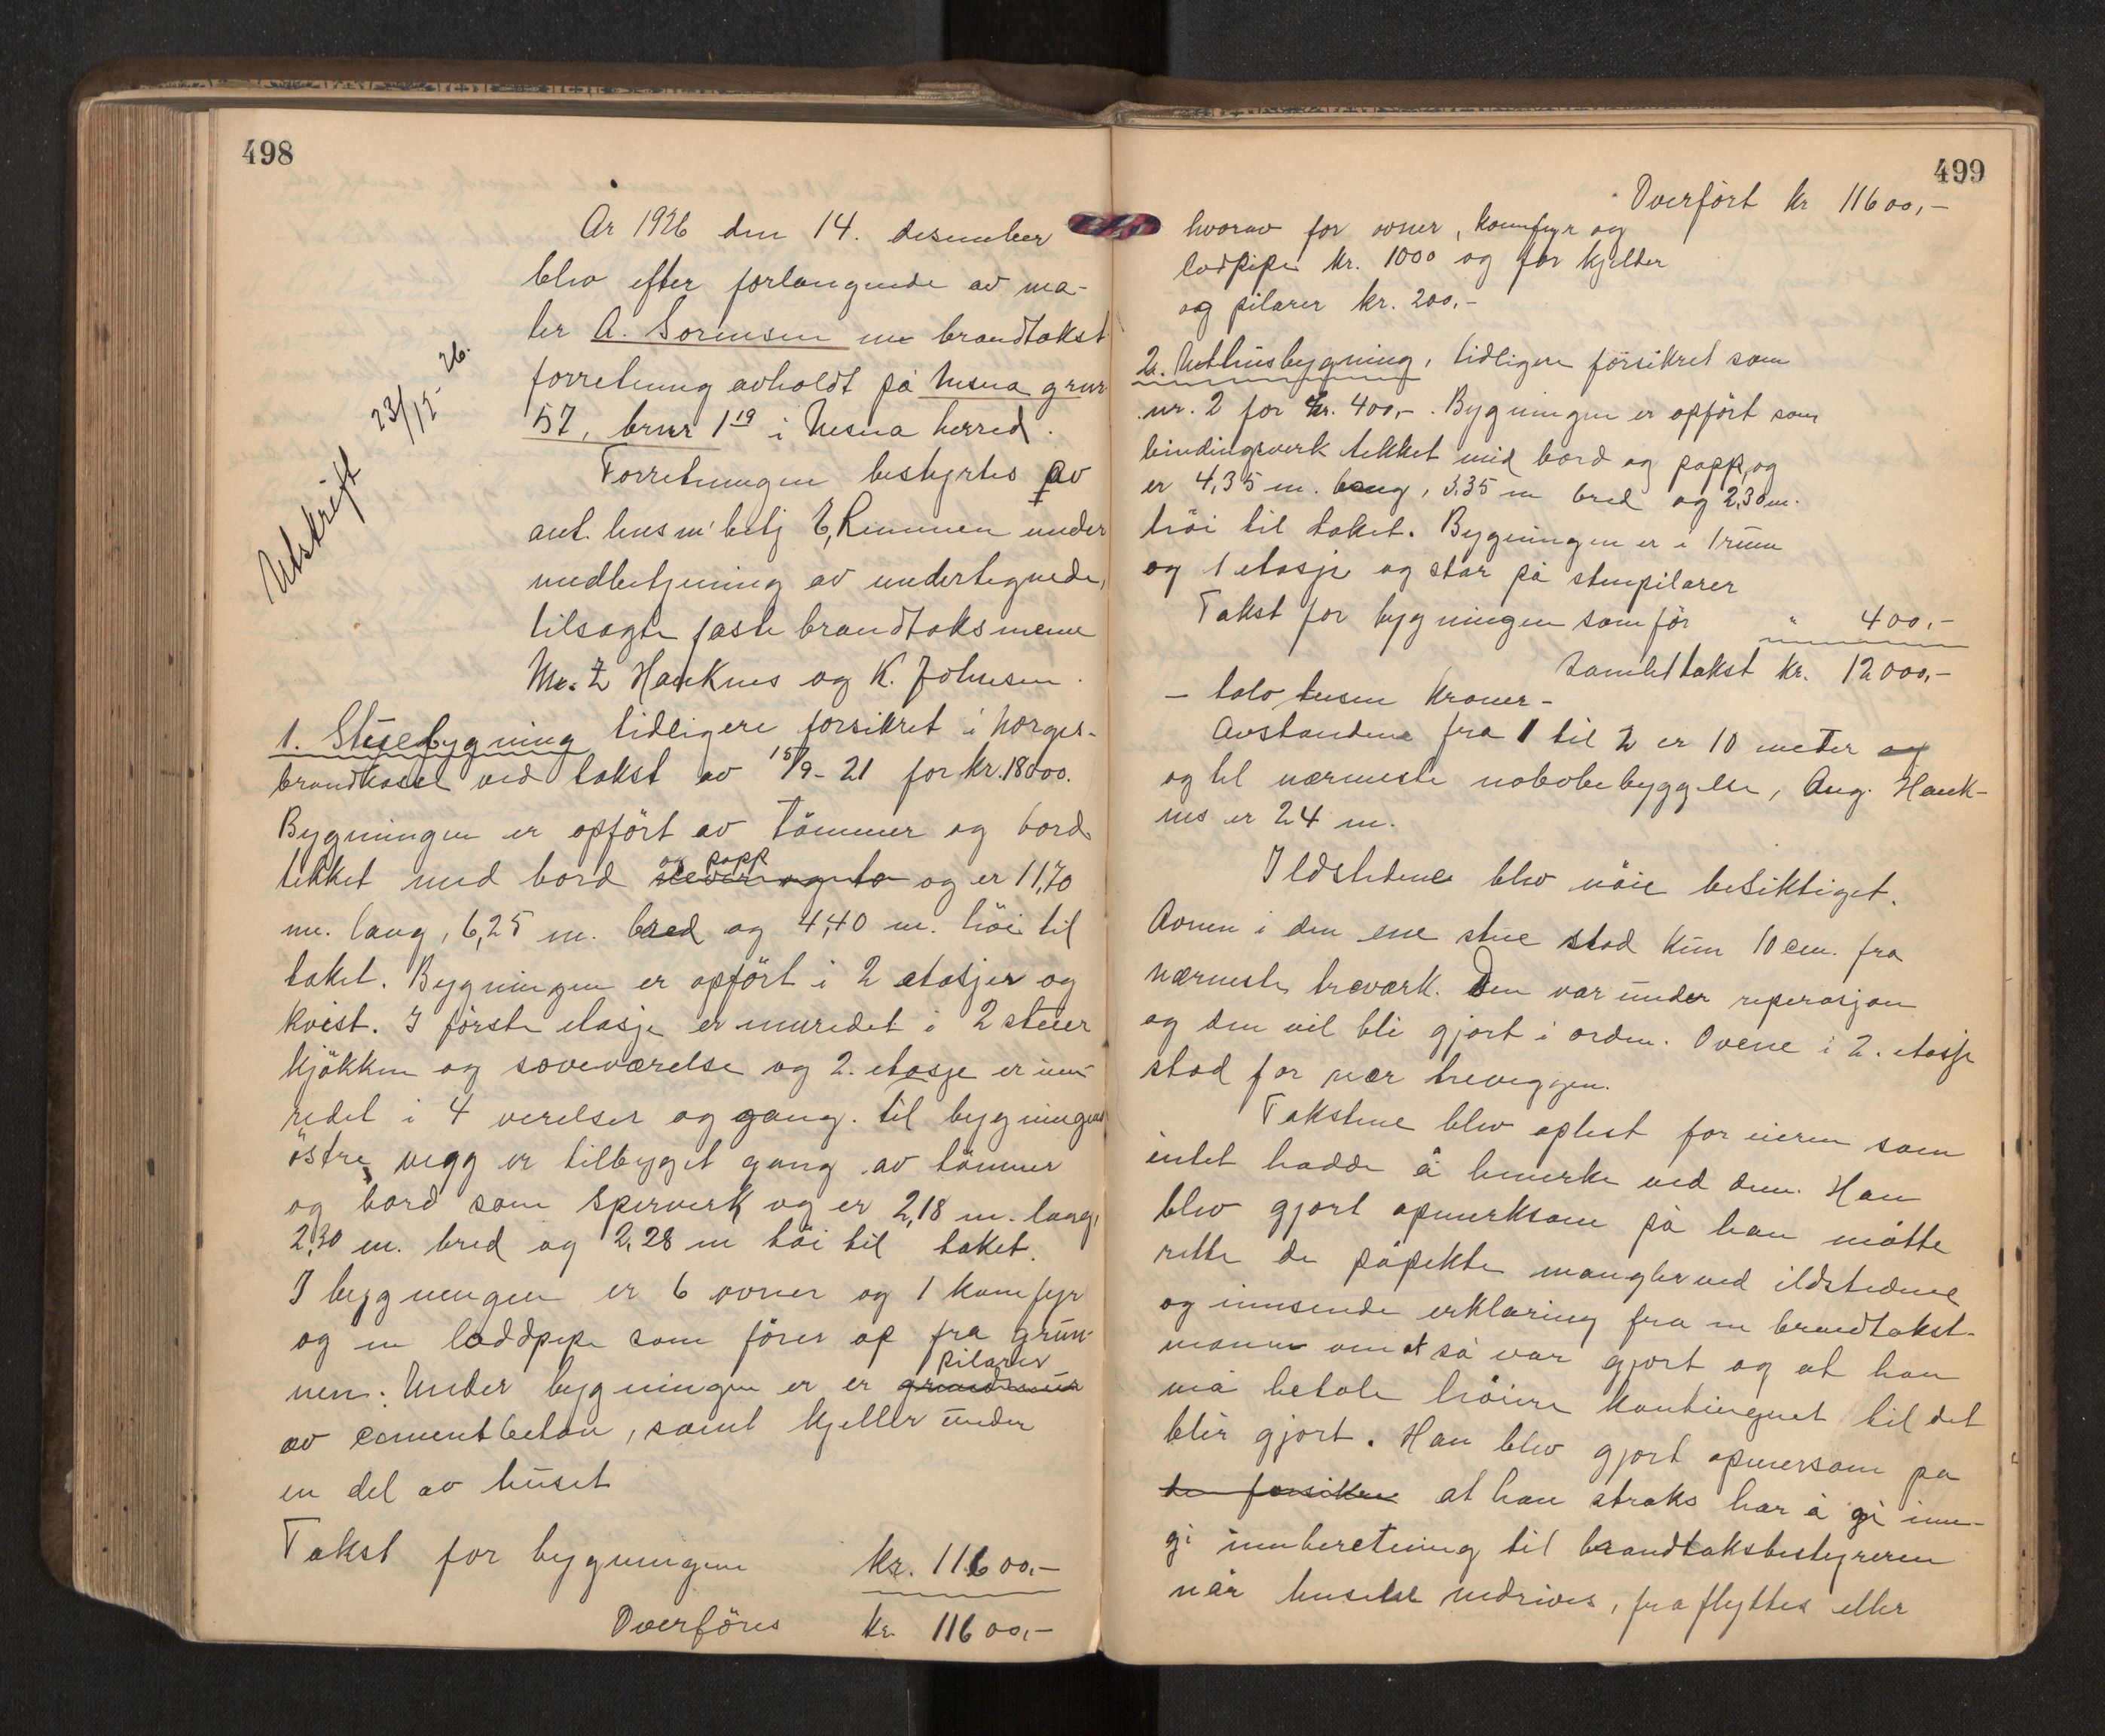 498
År 1926 den 14. desember
blev efter forlangende av ma-
ler A. Sörensen en brandtakst
forretning avholdt på Nesna grnr
57, brnr 1 19 i Nesna herred.
Utskrift 23/12-26.
Forretningen bestyrtes av
ant. lensm' betj E, Remmen under
medbetjening av undertegnede,
tilsagte faste brandtaksmenn
M. Z Hanknes og K. Johnsen.
1. Stuebygning tidligere forsikret i Norges-
brandkasse ved takst av 15/9-21 for kr. 18000.
Bygningen er opfört av tömmer og bord
tekket med bord og papp og er 11,70
m. lang, 6,25 m. bred og 4,40 m. höi til
taket. Bygningen er opfört i 2 etasjer og
kvist. I förste etasje er innredet i 2 stuer
kjökken og soveværelse og 2. etasje er inn-
redet i 4 verelser og gang. til bygningens
östre vegg er tilbyget gang av tömmer
og bord som sperverk og er 2,18 m. lang,
2,30 m. bred og 2,28 m höi til taket.
I bygningen er 6 ovner og 1 komfyr
og en loddpipe som förer op fra grun-
nen. Under bygningen er er grundmur pilarer
av cementbeton, samt kjeller under
en del av huset
Takst for bygningen kr. 11600.-
Overföres kr 11600,-
499
Overfört kr 11600,-
hvorav for ovner, komfyr og
lodpipe kr. 1000 og for kjelder
og pilarer kr. 200,-
2. Uthusbygning, tidligere försikret som
nr. 2 for kr. 400,-. Bygningen er opfört som
bindingsverk tekket med bord og papp, og
er 4,35 m. lang, 3,35 m bred og 2,30 m.
höi til taket. Bygningen er i 1 rum
og 1 etasje og står på stenpilarer
Takst for bygningen som för " 400,-
Samlet takst kr. 12000,-
- tolv tusen kroner -
Avstandene fra 1 til 2 er 10 meter og
og til nærmeste nabobebyggelse, Aug. Hank-
nes er 24 m.
Ildstedene blev nöie besiktiget.
Ovnen i den ene stue stod kun 10 cm. fra
nærmeste treværk. Den var under reperasjon
og den vil bli gjort i orden. Ovene i 2. etasje
stod for nær treveggen.
Takstene blev oplest for eieren som
intet hadde å bemerke ved dem. Han
blev gjort opmerksom på han måtte
rette de påpekte mangler ved ildstedene
og innsende erklæring fra en brandtakst-
mann om at så var gjort og at han
må betale höiere kontingent til det
blir gjort. Han blev gjort opmersom på
de forsikre at han straks har å gi inn-
gi innberetning til brandtaksbestyreren
når husene nedrives, fraflyttes eller